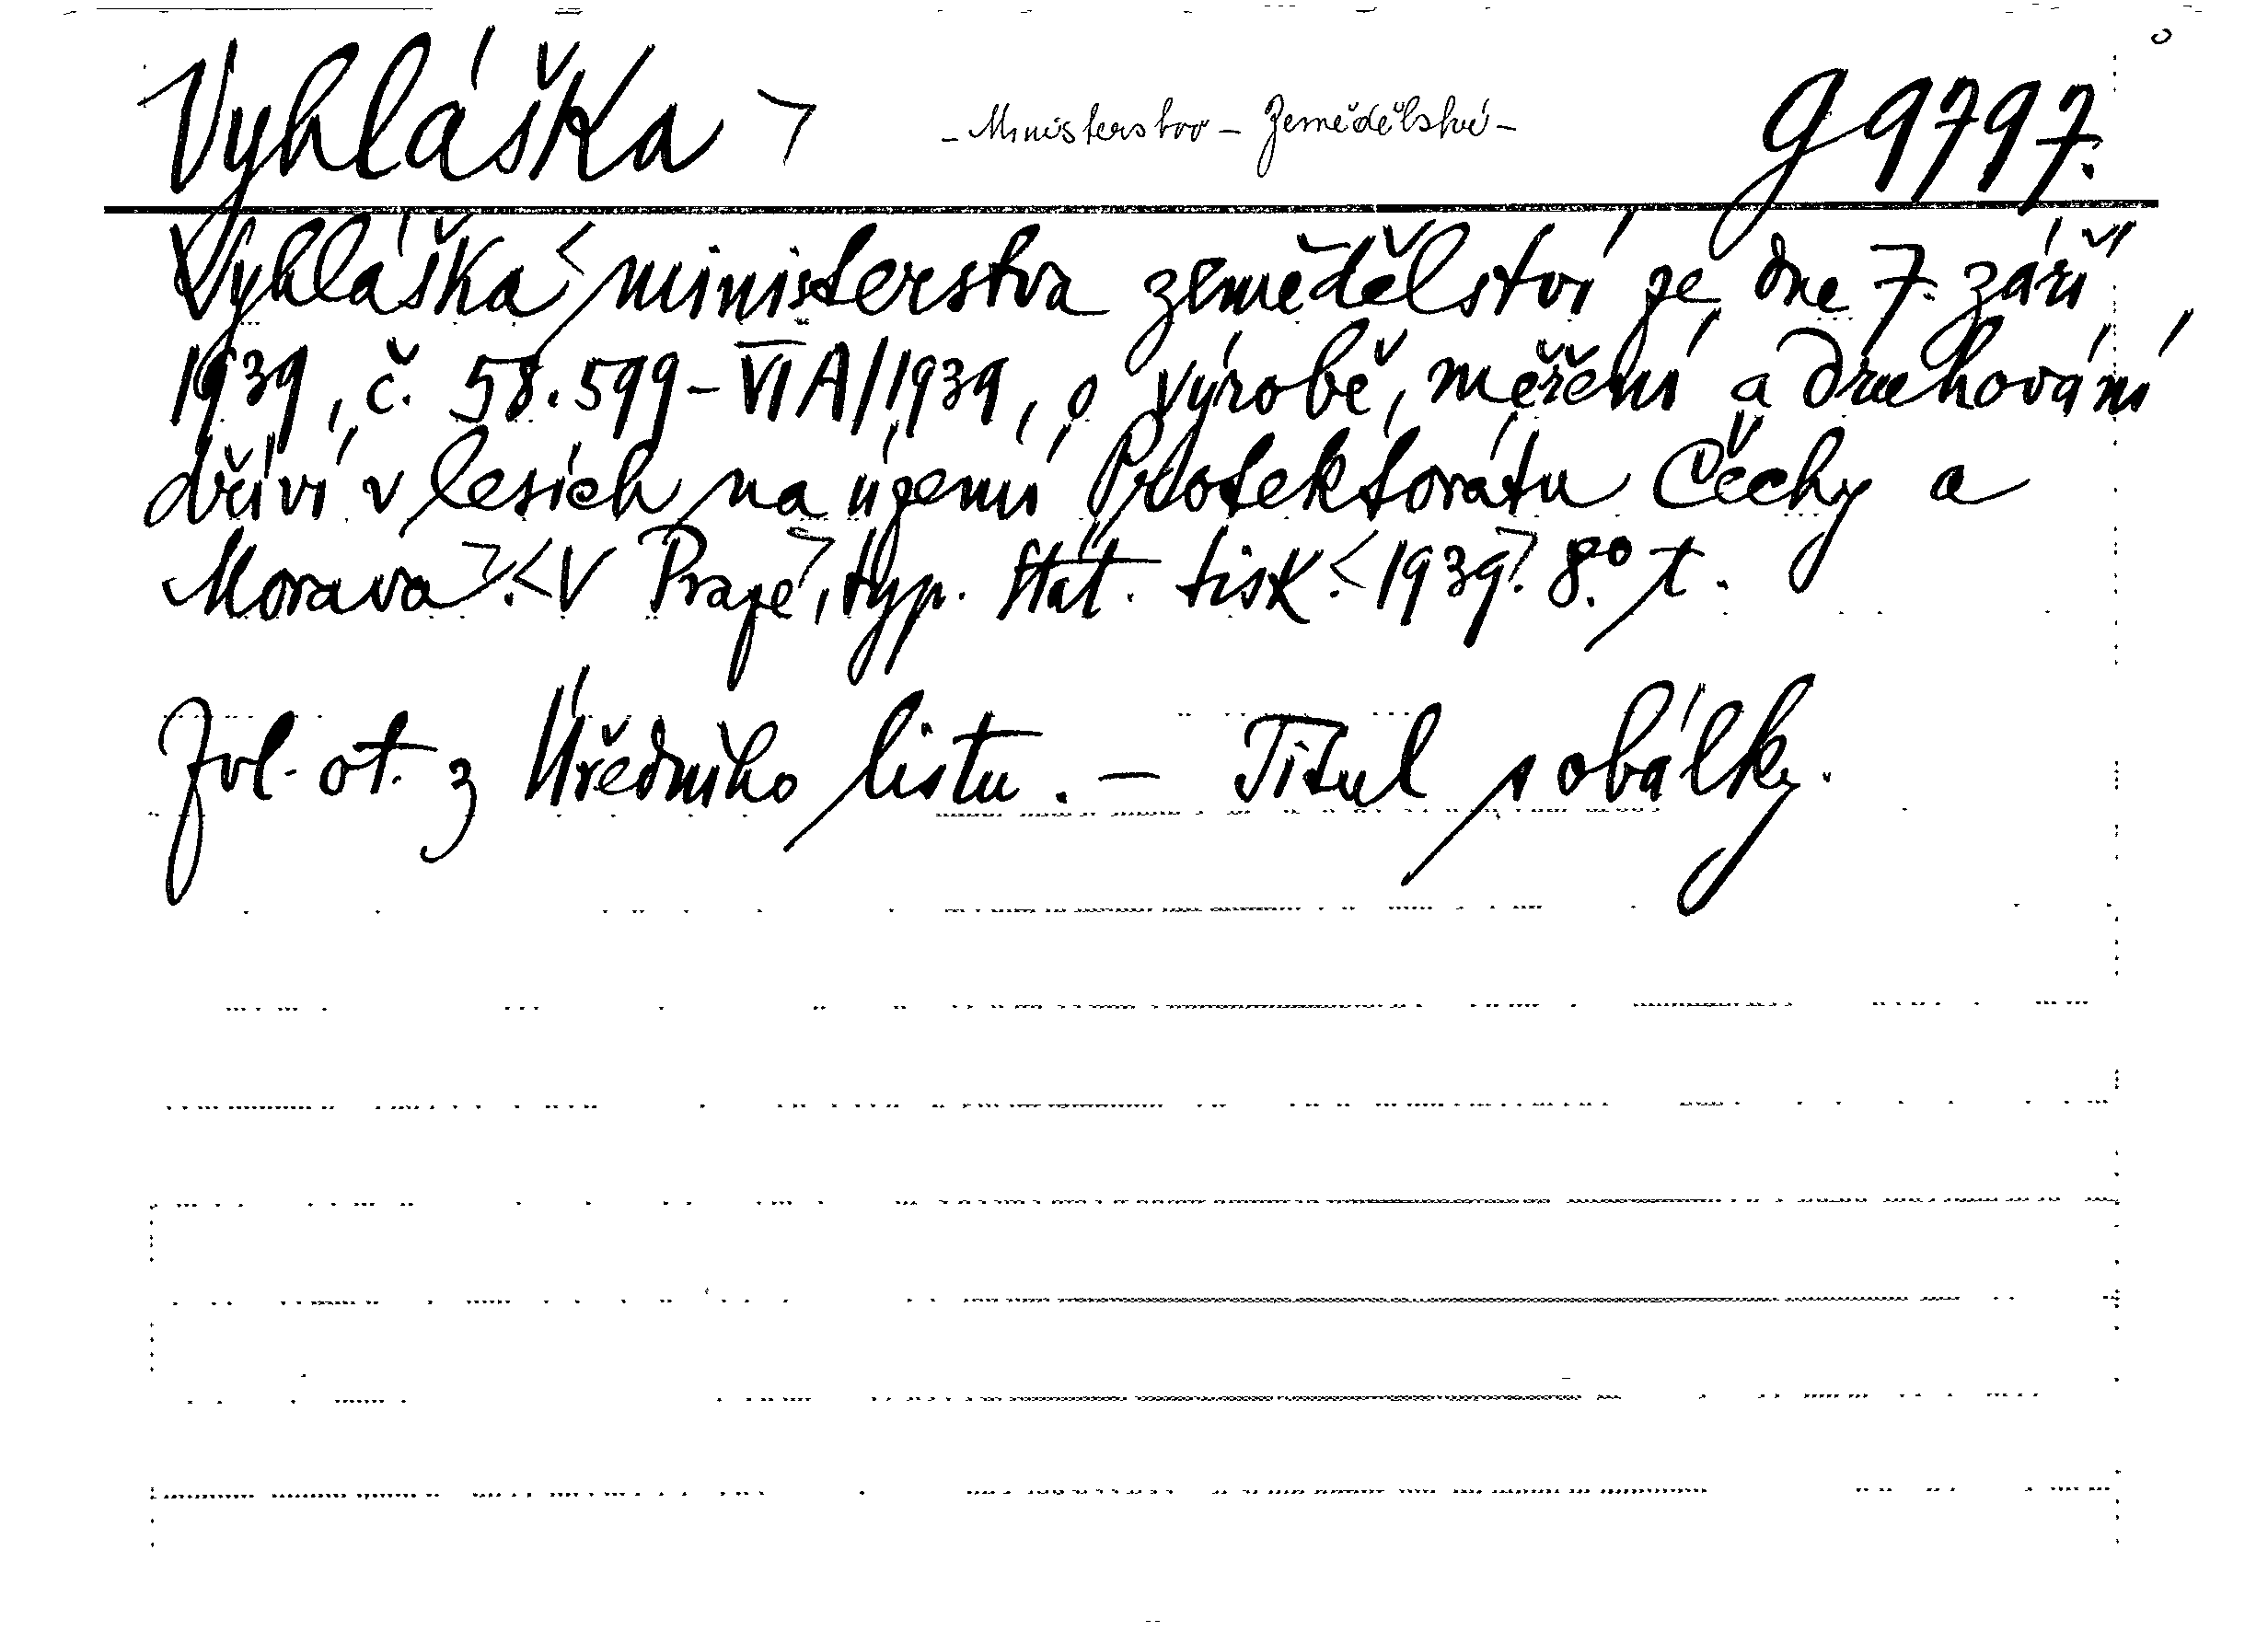 Vyhláška > - Ministerstvo - Zemědělství - G 9797.
Vyhláška < ministerstva zemědělství ze dne 7. září
1939, č. 58.599-VI A/1939, o výrobě, měření a druhování
dříví v lesích na území Protektorátu Čechy a
Morava >. < V Praze >, typ. Stát. tisk. < 1939 >. 8.° t.
Zvl. ot. z Úředního listu. — Titul s obálky.